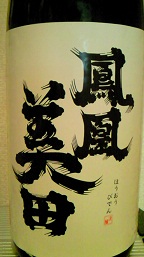 鳳凰
美田
ほうおう
びでん